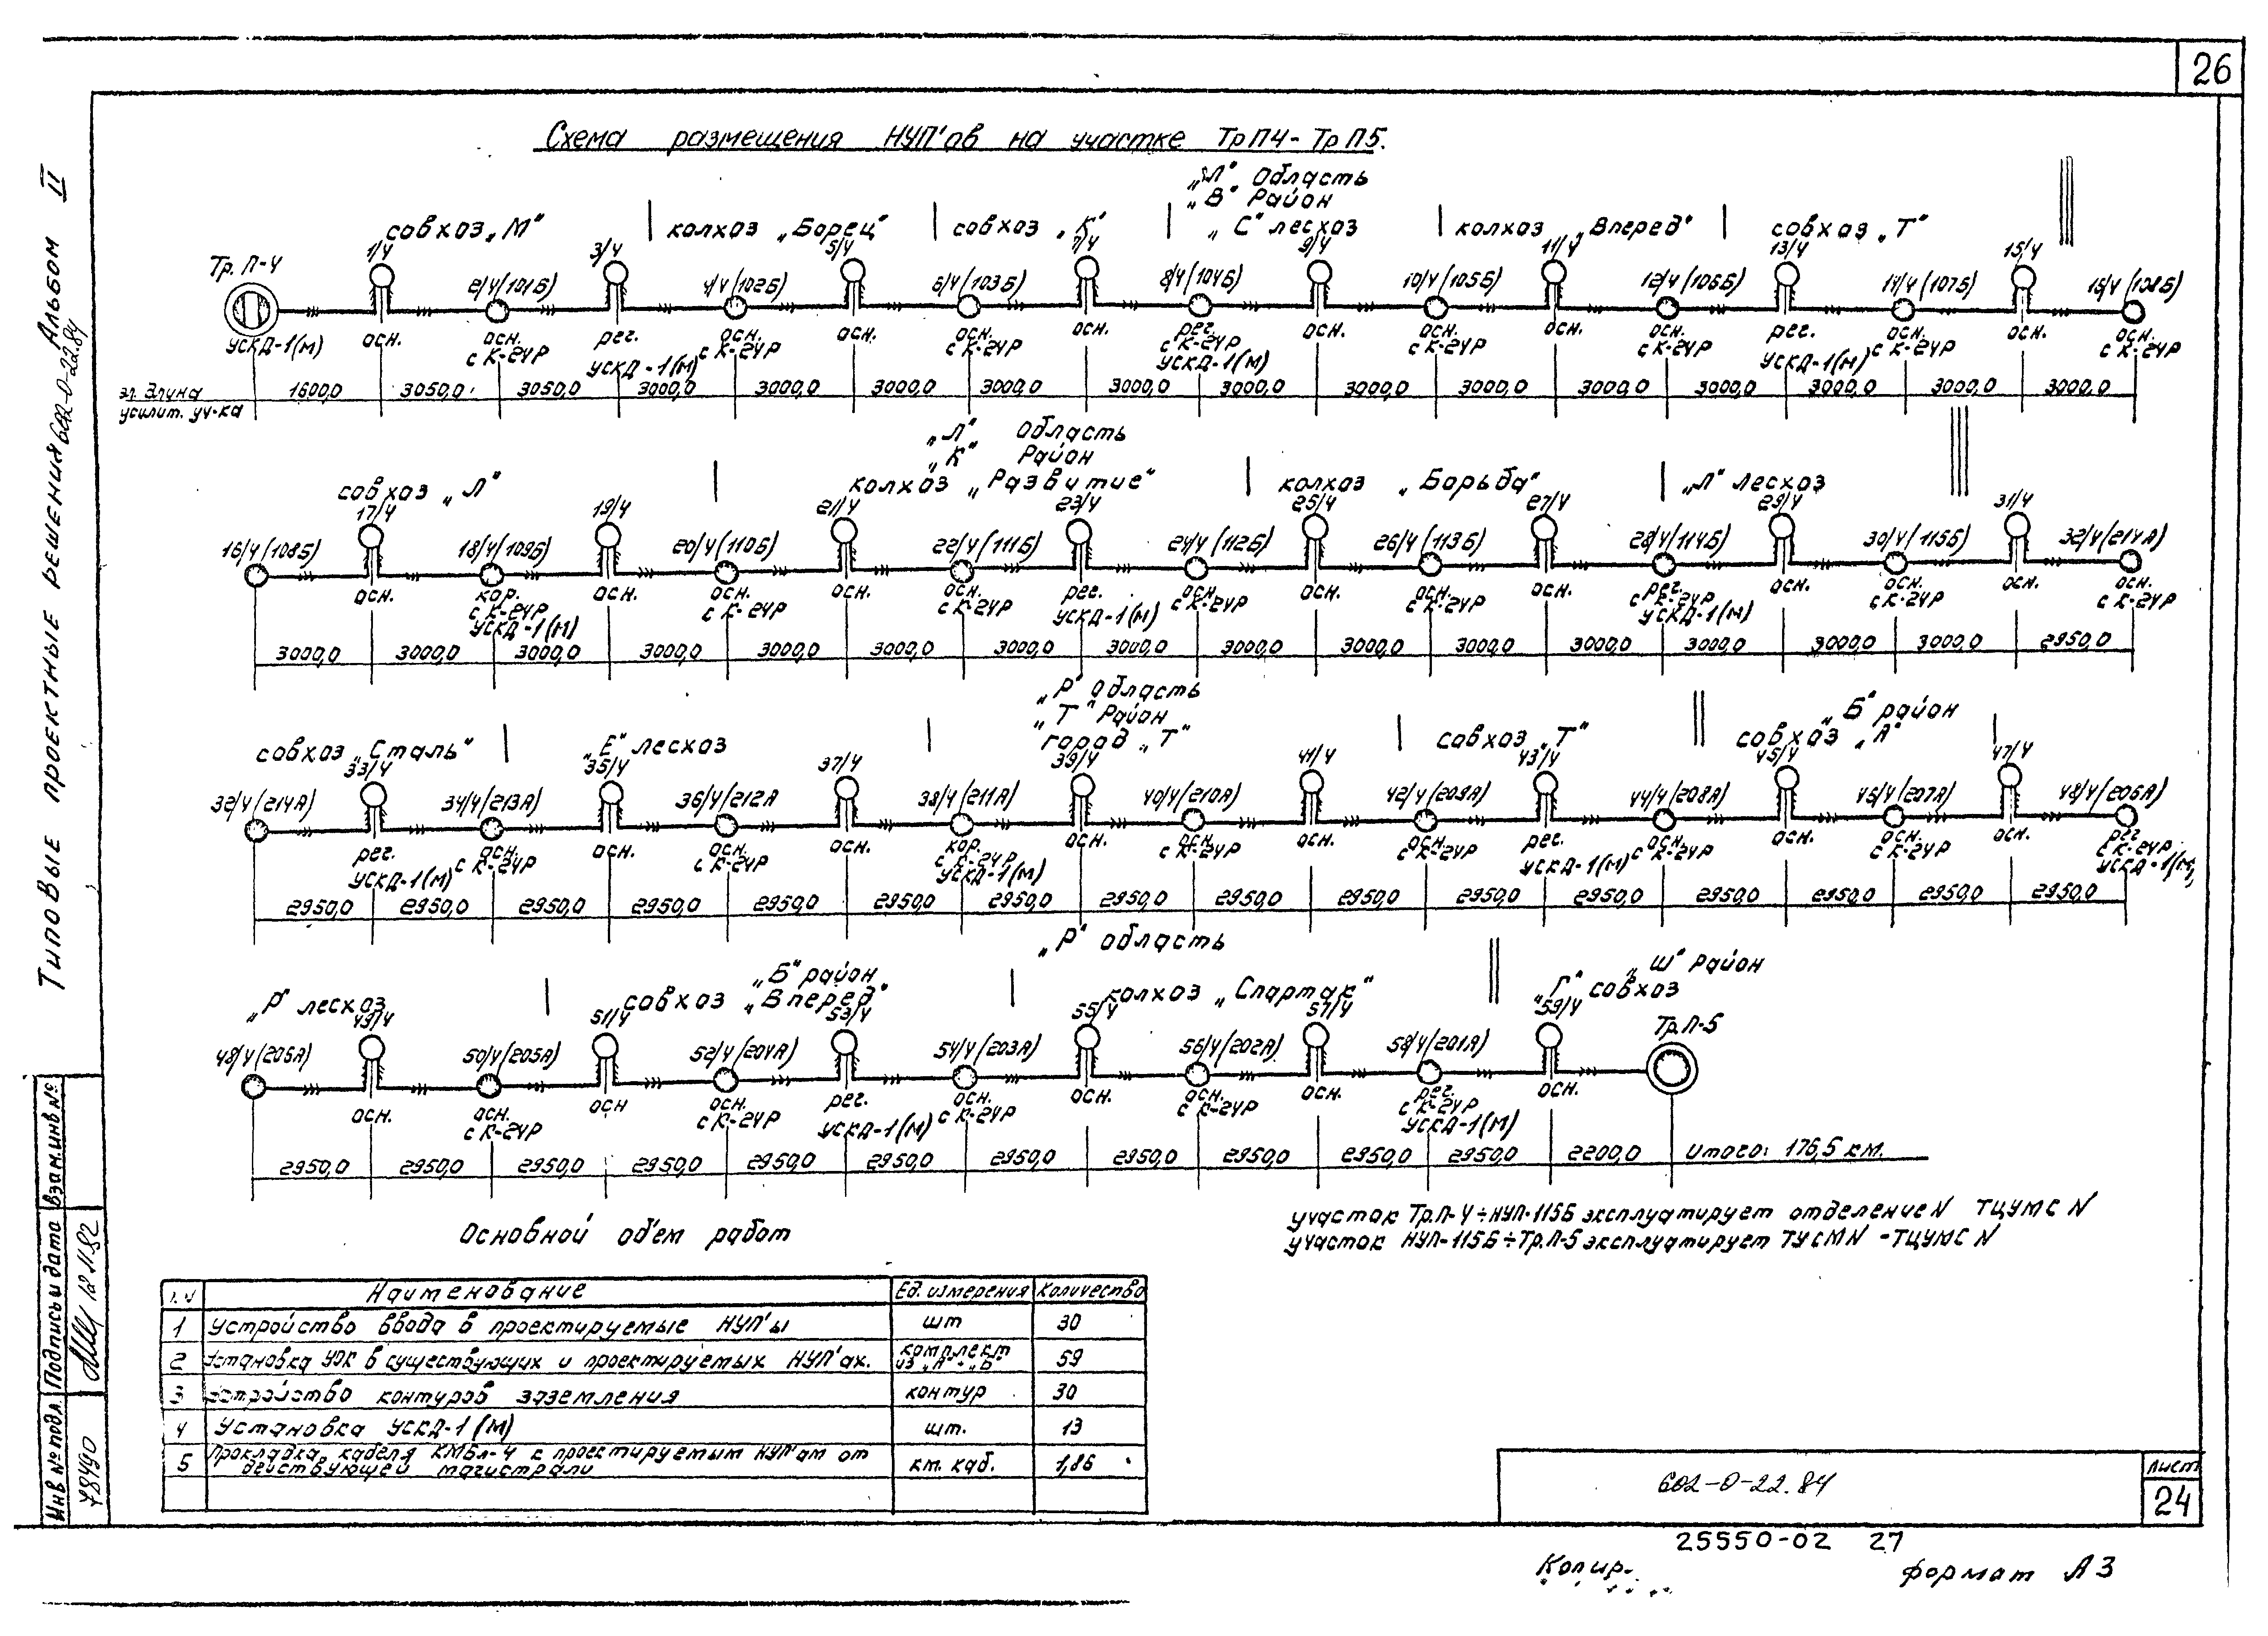 26
Схема размещения НУП'ов на участке ТрП4-ТрП5.
„Л" Область
„В" Район
совхоз „М" колхоз „Борец" совхоз „К" „С" лесхоз колхоз „Вперед" совхоз „Т"
1/4 3/4 5/4 7/4 9/4 11/4 13/4 15/4
Тр. П-4 2/4(101Б) 4/4(102Б) 6/4(103Б) 8/4(104Б) 10/4(105Б) 12/4(106Б) 14/4(107Б) 16/4(108Б)
УСКД-1(М) осн. осн. рег. осн. осн. осн. осн. рег. осн. осн. осн. осн. рег. осн. осн. осн.
с К-24Р с К-24Р с К-24Р с К-24Р с К-24Р с К-24Р с К-24Р с К-24Р
УСКД-1(М) УСКД-1(М) УСКД-1(М)
эл. длина 1600,0 3050,0 3050,0 3000,0 3000,0 3000,0 3000,0 3000,0 3000,0 3000,0 3000,0 3000,0 3000,0 3000,0 3000,0 3000,0
усилит. уч-ка
„Л" область
„К" Район
совхоз „Л" колхоз „Развитие" колхоз „Борьба" „Л" лесхоз
17/4 19/4 21/4 23/4 25/4 27/4 29/4 31/4
16/4(108Б) 18/4(109Б) 20/4(110Б) 22/4(111Б) 24/4(112Б) 26/4(113Б) 28/4(114Б) 30/4(115Б) 32/4(214А)
осн. кор. осн. осн. осн. осн. рег. осн. осн. осн. осн. рег. осн. осн. осн. осн.
с К-24Р с К-24Р с К-24Р с К-24Р с К-24Р с К-24Р с К-24Р с К-24Р
УСКД-1(М) УСКД-1(М) УСКД-1(М)
3000,0 3000,0 3000,0 3000,0 3000,0 3000,0 3000,0 3000,0 3000,0 3000,0 3000,0 3000,0 3000,0 3000,0 3000,0 2950,0
„Р" область
„Т" Район „Б" район
совхоз „Сталь" „Е" лесхоз город „Т" совхоз „Т" совхоз „А"
33/4 35/4 37/4 39/4 41/4 43/4 45/4 47/4
32/4(214А) 34/4(213А) 36/4(212А 38/4(211А) 40/4(210А) 42/4(209А) 44/4(208А) 46/4(207А) 48/4(206А)
рег. осн. осн. осн. осн. кор. осн. осн. осн. осн. рег. осн. осн. осн. осн. рег
с К-24Р с К-24Р с К-24Р с К-24Р с К-24Р с К-24Р с К-24Р с К-24Р
УСКД-1(М) УСКД-1(М) УСКД-1(М) УСКД-1(М)
2950,0 2950,0 2950,0 2950,0 2950,0 2950,0 2950,0 2950,0 2950,0 2950,0 2950,0 2950,0 2950,0 2950,0 2950,0 2950,0
„Р" область
„Б" район „Ш" район
„Р" лесхоз совхоз „Вперед" колхоз „Спартак" „Г" совхоз
49/4 51/4 53/4 55/4 57/4 59/4 Тр.П-5
48/4(206А) 50/4(205А) 52/4(204А) 54/4(203А) 56/4(202А) 58/4(201А)
осн. осн. осн осн. рег. осн. осн. осн. осн. рег. осн.
с К-24Р с К-24Р с К-24Р с К-24Р с К-24Р
УСКД-1(М) УСКД-1(М)
2950,0 2950,0 2950,0 2950,0 2950,0 2950,0 2950,0 2950,0 2950,0 2950,0 2950,0 2200,0 Итого: 176,5 км.
участок Тр.П-4÷НУП-115Б эксплуатирует отделение N ТЦУМС N
участок НУП-115Б÷Тр.П-5 эксплуатирует ТУСМ N -ТЦУМС N
Основной об'ем работ
Наименование Ед. измерения Количество
1 Устройство ввода в проектируемые НУП'ы шт 30
2 Установка УОК в существующих и проектируемых НУП'ах. комплект из „А"+„Б" 59
3 Устройство контуров заземления контур 30
4 Установка УСКД-1(М) шт. 13
5 Прокладка кабеля КМБл-4 к проектируемым НУП'ам от
действующей магистрали км. каб. 1,86
602-0-22.84
Лист
24
25550-02 27
Копир. формат А3
Типовые проектные решения 602-0-22.84 Альбом II
Инв № подл. Подпись и дата Взам.инв №
78490 12.11.82